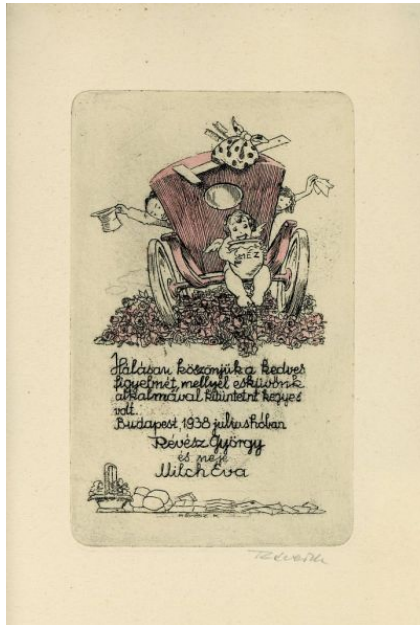 MÉZ
Hálásan köszönjük a kedves
figyelmét, mellyel esküvőnk
alkalmával kitüntetni kegyes
volt.
Budapest, 1938 julius hóban
Révész György
és neje
Milch Éva